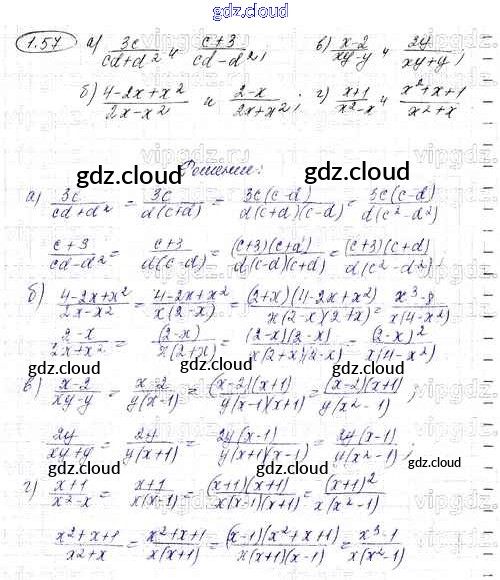 gdz.cloud
1.57 а) 3c/(cd+d²) и (c+3)/(cd-d²); в) (x-2)/(xy-y) и 2y/(xy+y);
б) (4-2x+x²)/(2x-x²) и (2-x)/(2x+x²); г) (x+1)/(x²-x) и (x²+x+1)/(x²+x)
Решение:
gdz.cloud gdz.cloud
а) 3c/(cd+d²) = 3c/(d(c+d)) = 3c(c-d)/(d(c+d)(c-d)) = 3c(c-d)/(d(c²-d²))
(c+3)/(cd-d²) = (c+3)/(d(c-d)) = (c+3)(c+d)/(d(c-d)(c+d)) = (c+3)(c+d)/(d(c²-d²));
gdz.cloud gdz.cloud
б) (4-2x+x²)/(2x-x²) = (4-2x+x²)/(x(2-x)) = (2+x)(4-2x+x²)/(x(2-x)(2+x)) = (x³-8)/(x(4-x²))
(2-x)/(2x+x²) = (2-x)/(x(2+x)) = (2-x)(2-x)/(x(2+x)(2-x)) = (2-x)²/(x(4-x²))
gdz.cloud gdz.cloud
в) (x-2)/(xy-y) = (x-2)/(y(x-1)) = (x-2)(x+1)/(y(x-1)(x+1)) = (x-2)(x+1)/(y(x²-1));
2y/(xy+y) = 2y/(y(x+1)) = 2y(x-1)/(y(x+1)(x-1)) = 2y(x-1)/(y(x²-1));
gdz.cloud gdz.cloud
г) (x+1)/(x²-x) = (x+1)/(x(x-1)) = (x+1)(x+1)/(x(x-1)(x+1)) = (x+1)²/(x(x²-1))
(x²+x+1)/(x²+x) = (x²+x+1)/(x(x+1)) = (x-1)(x²+x+1)/(x(x+1)(x-1)) = (x³-1)/(x(x²-1))
gdz.cloud